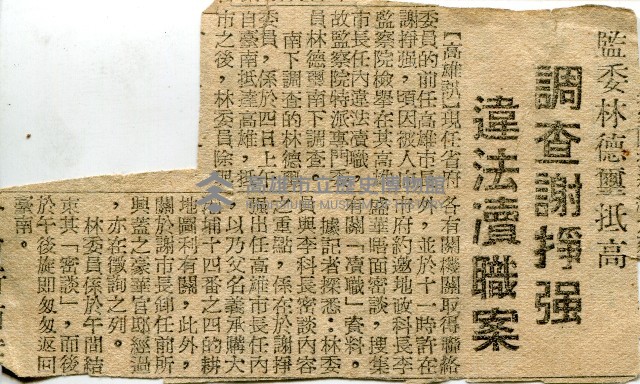 監委林德璽抵高
調查謝掙强
違法瀆職案
【高雄訊】現任省府
委員的前任高雄市長
謝掙强，頃因被人向
監察院檢舉在其高雄
市長任內違法瀆職，
故監察院特派專門委
員林德璽南下調查。
南下調查的林德璽
委員，係於四日上午
自臺南抵達高雄，抵
市之後，林委員除與
各有關機關取得聯絡
外，並於十一時許在
市府約邀地政科長李
盛華晤面密談，搜集
有關「瀆職」資料。
據記者探悉：林委
員與李科長密談內容
之重點，係在於謝掙
强出任高雄市長任內
，以乃父名義承購大
港埔十四番之四的耕
地圖利有關，此外，
關於謝市長卸任前所
興蓋之豪華官邸經過
，亦在徵詢之列。
林委員係於午間結
束其「密談」，而後
於午後旋即匆匆返回
臺南。
高雄市立歷史博物館